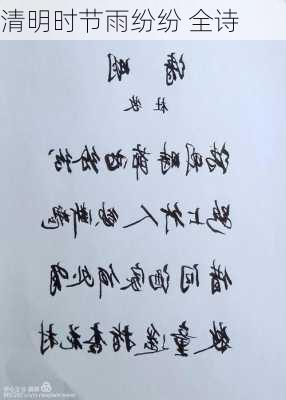 清明时节雨纷纷 全诗
清明
杜牧
清明时节雨纷纷
路上行人欲断魂
借问酒家何处有
牧童遥指杏花村